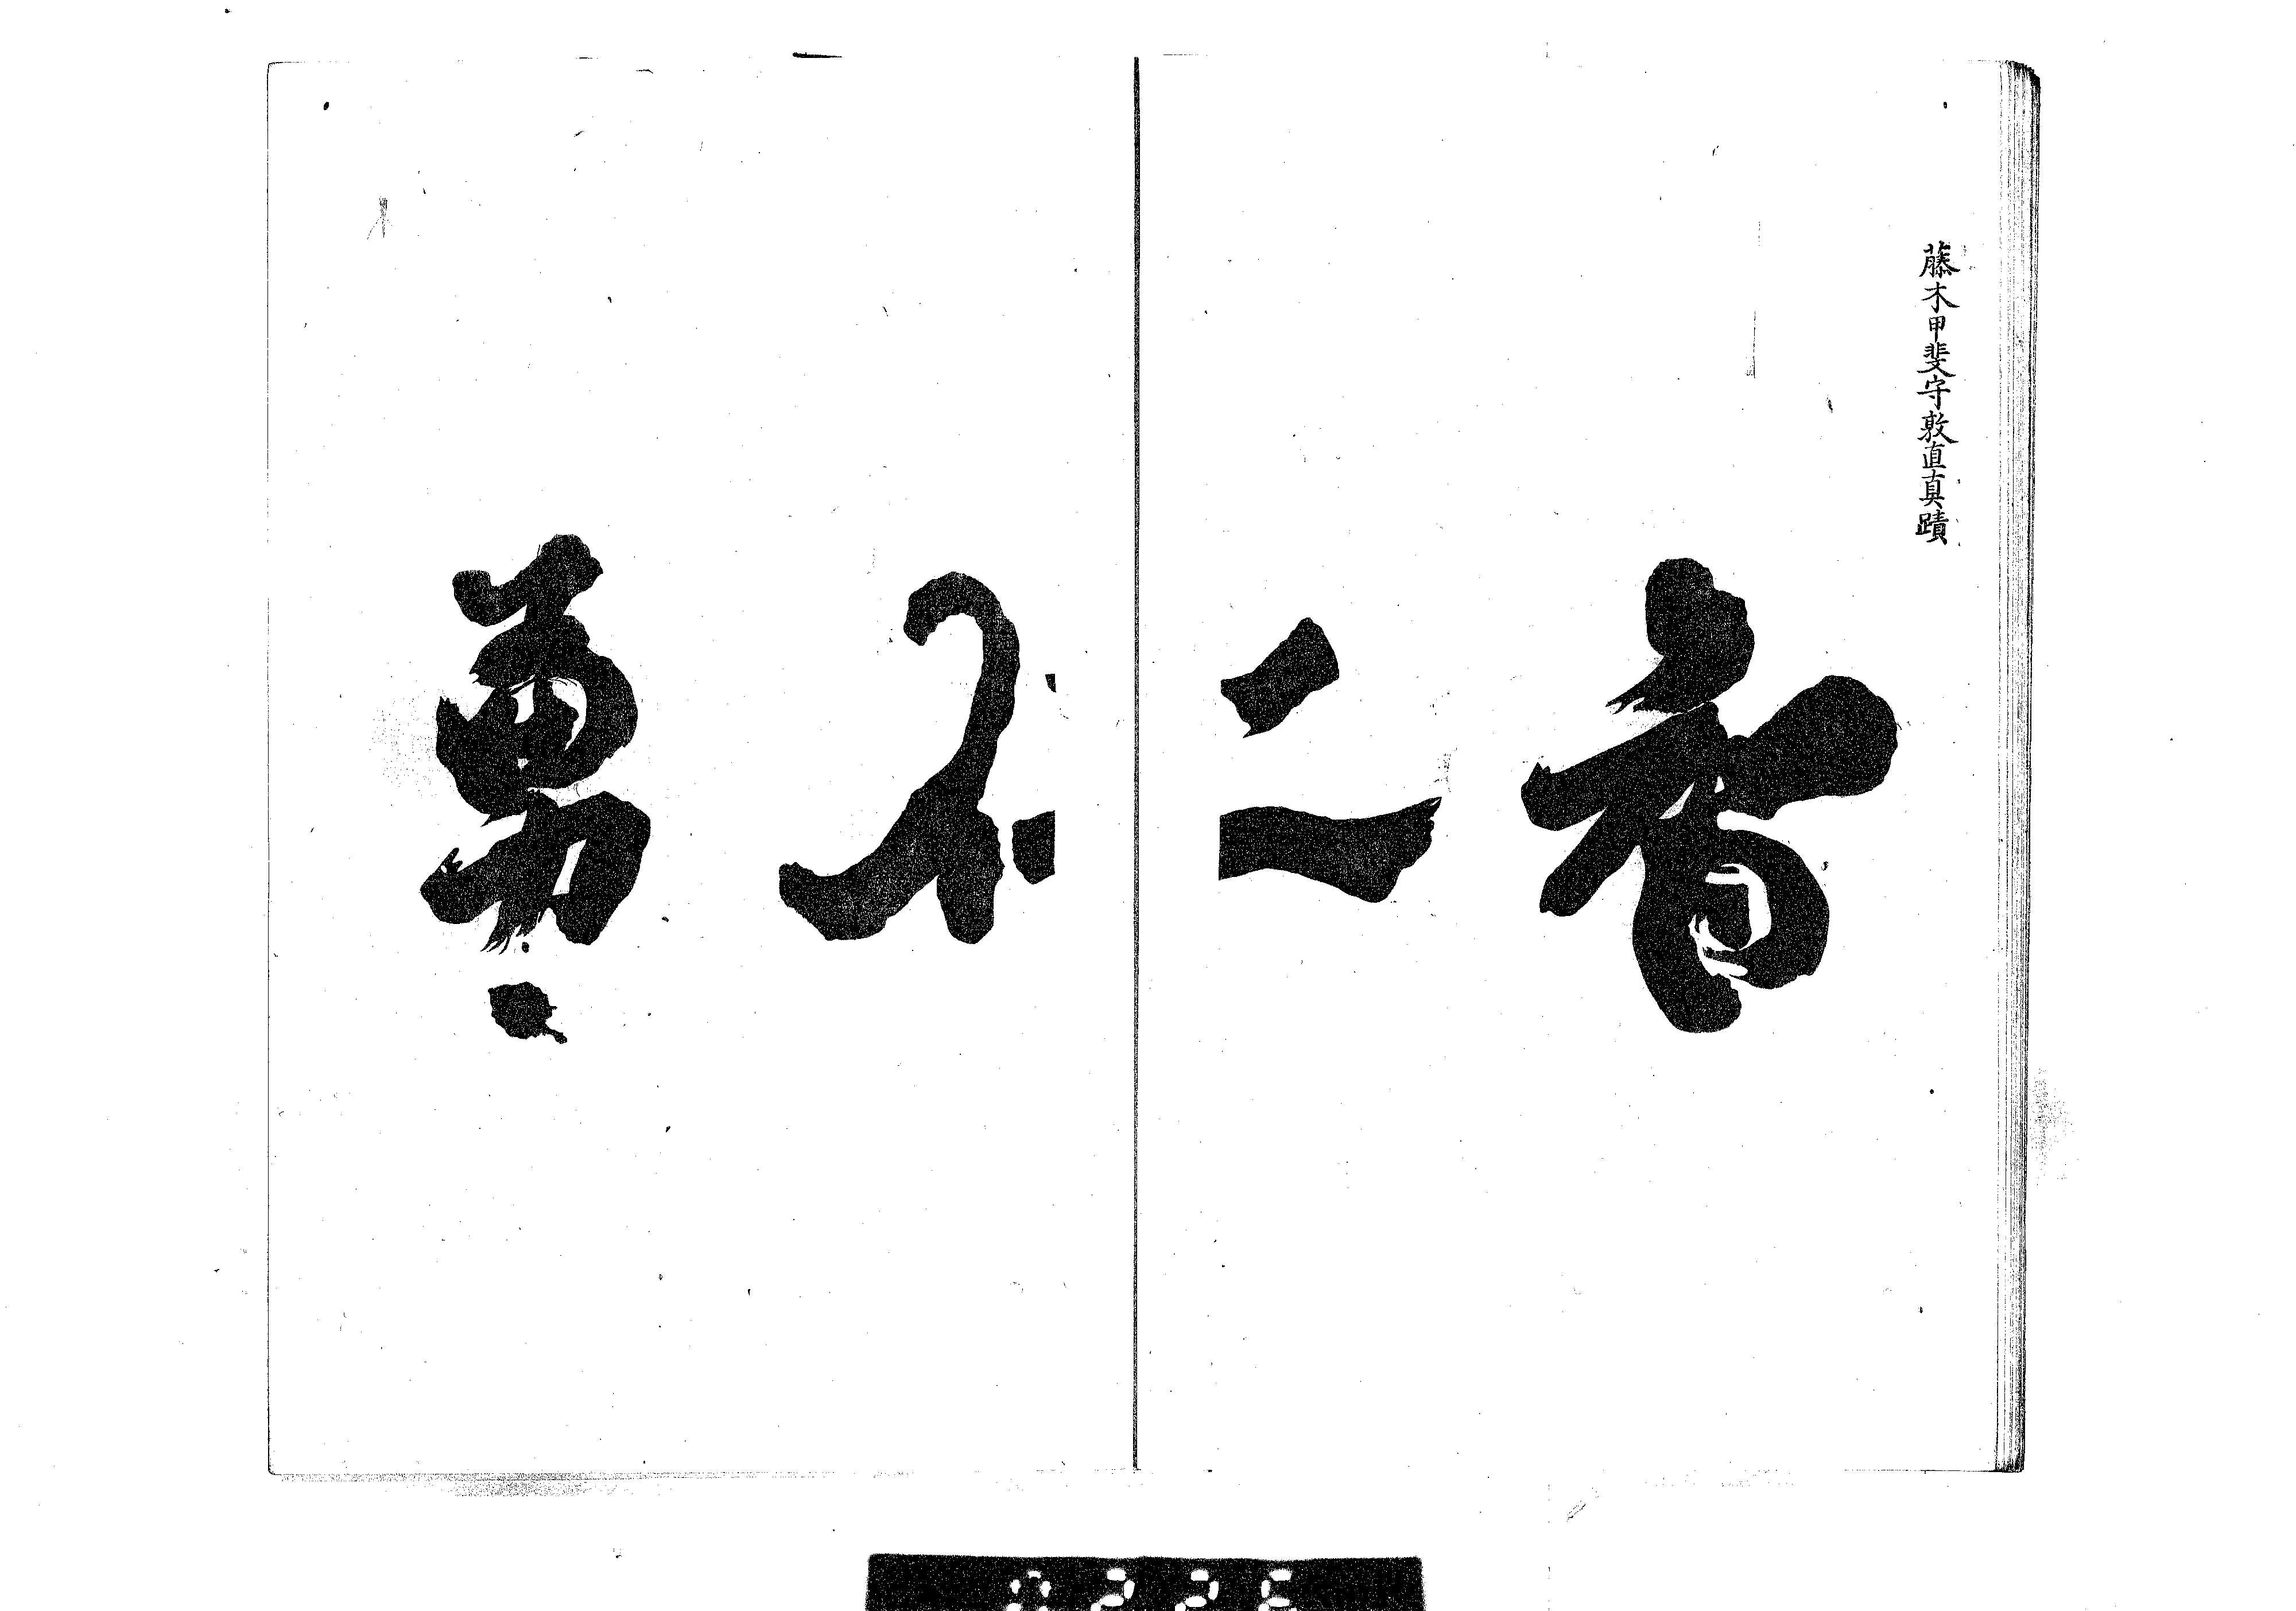 藤木甲斐守敦直真蹟
智仁勇